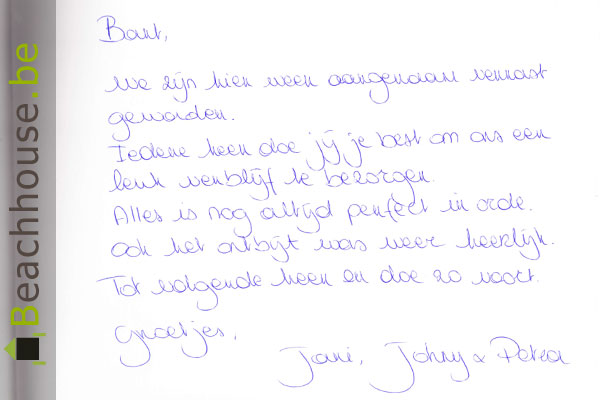 Beachhouse.be
Bart,
We zijn hier weer aangenaam verrast
geworden.
Iedere keer doe jij je best om ons een
leuk verblijf te bezorgen.
Alles is nog altijd perfect in orde.
Ook het ontbijt was weer heerlijk.
Tot volgende keer en doe zo voort.
Groetjes,
Joni, Johny & Petra